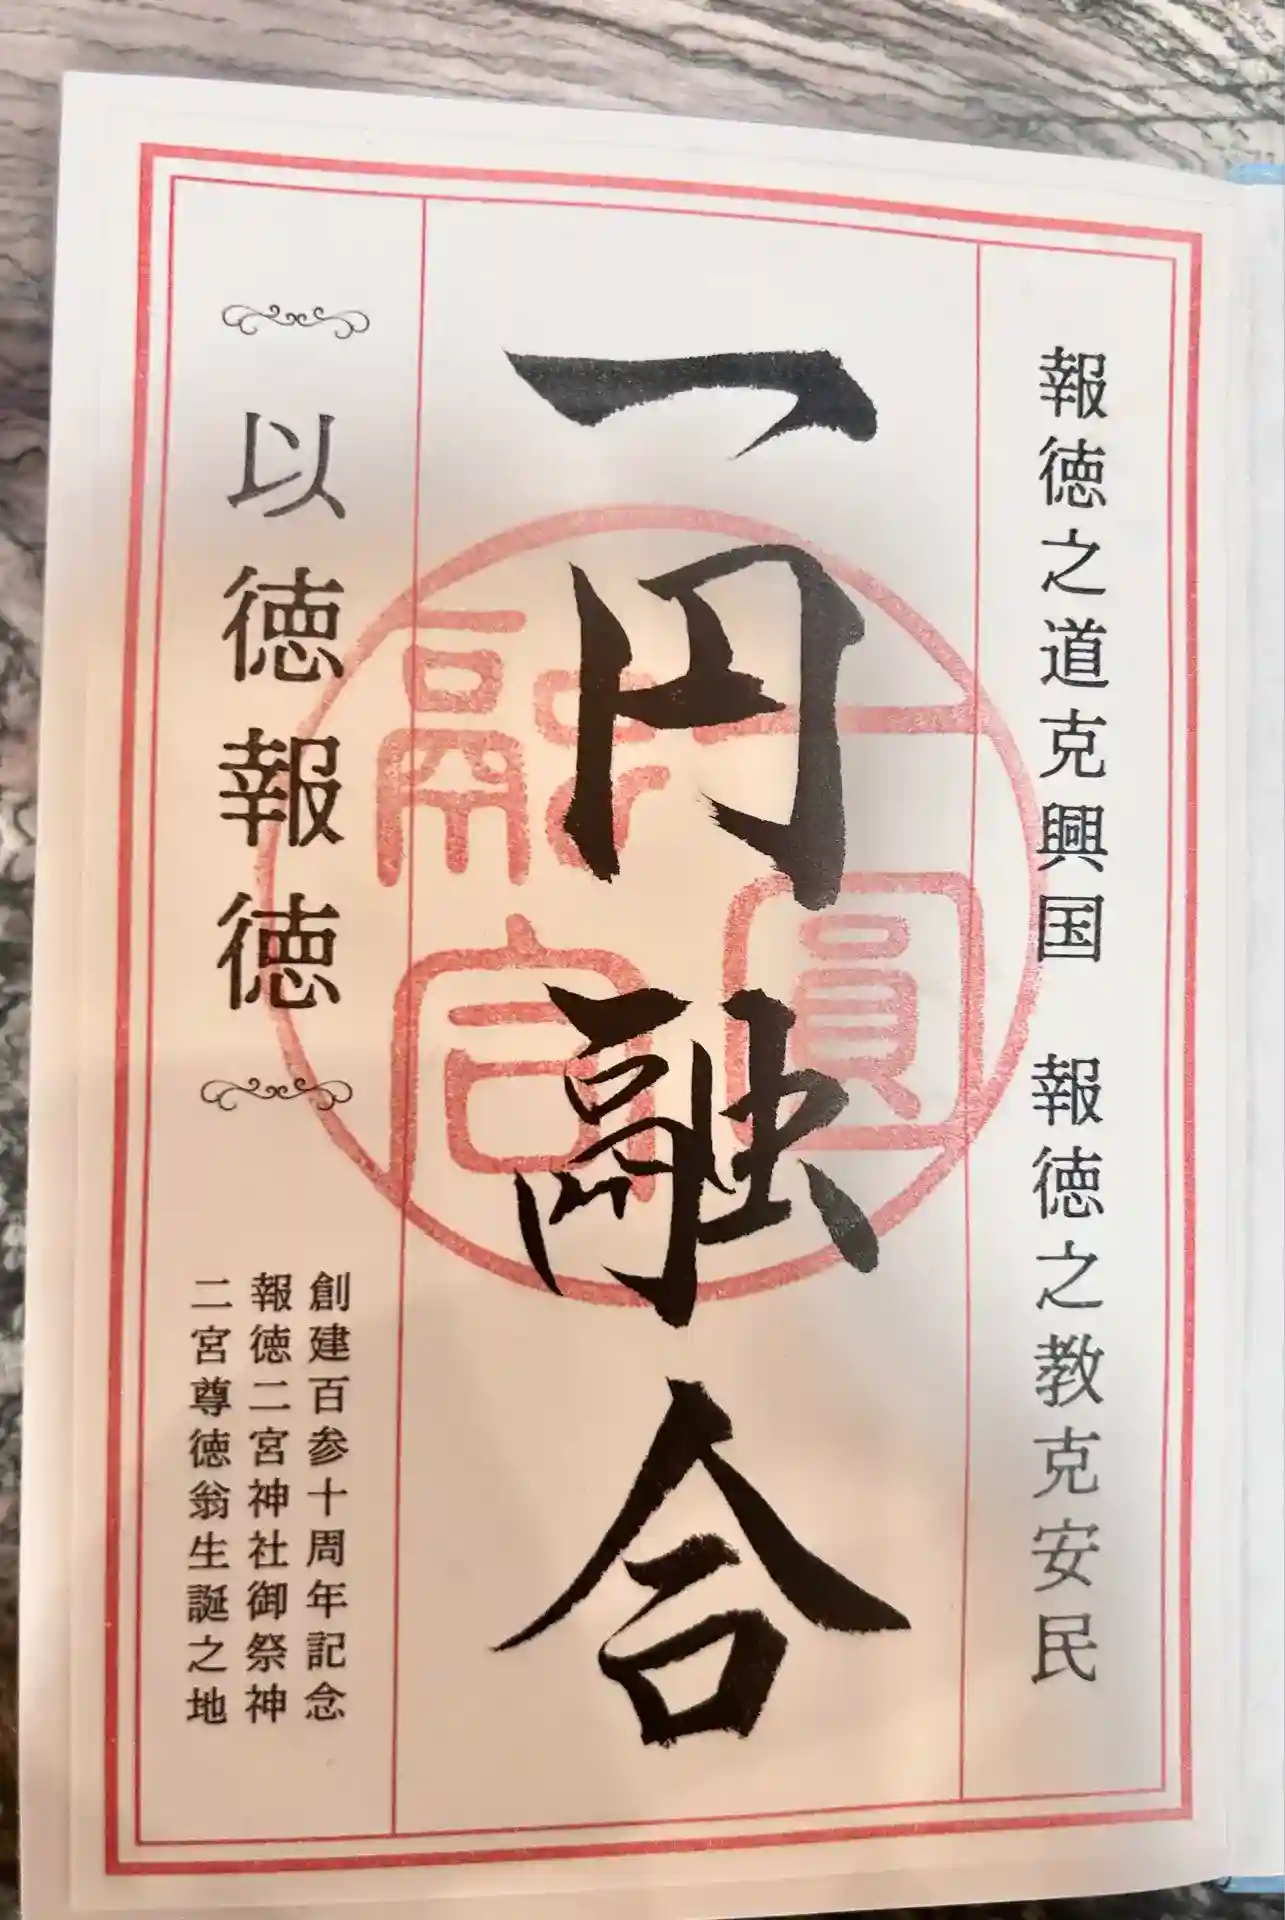 報徳之道克興国　報徳之教克安民
一円融合
一圓
融合
以徳報徳
創建百参十周年記念
報徳二宮神社御祭神
二宮尊徳翁生誕之地